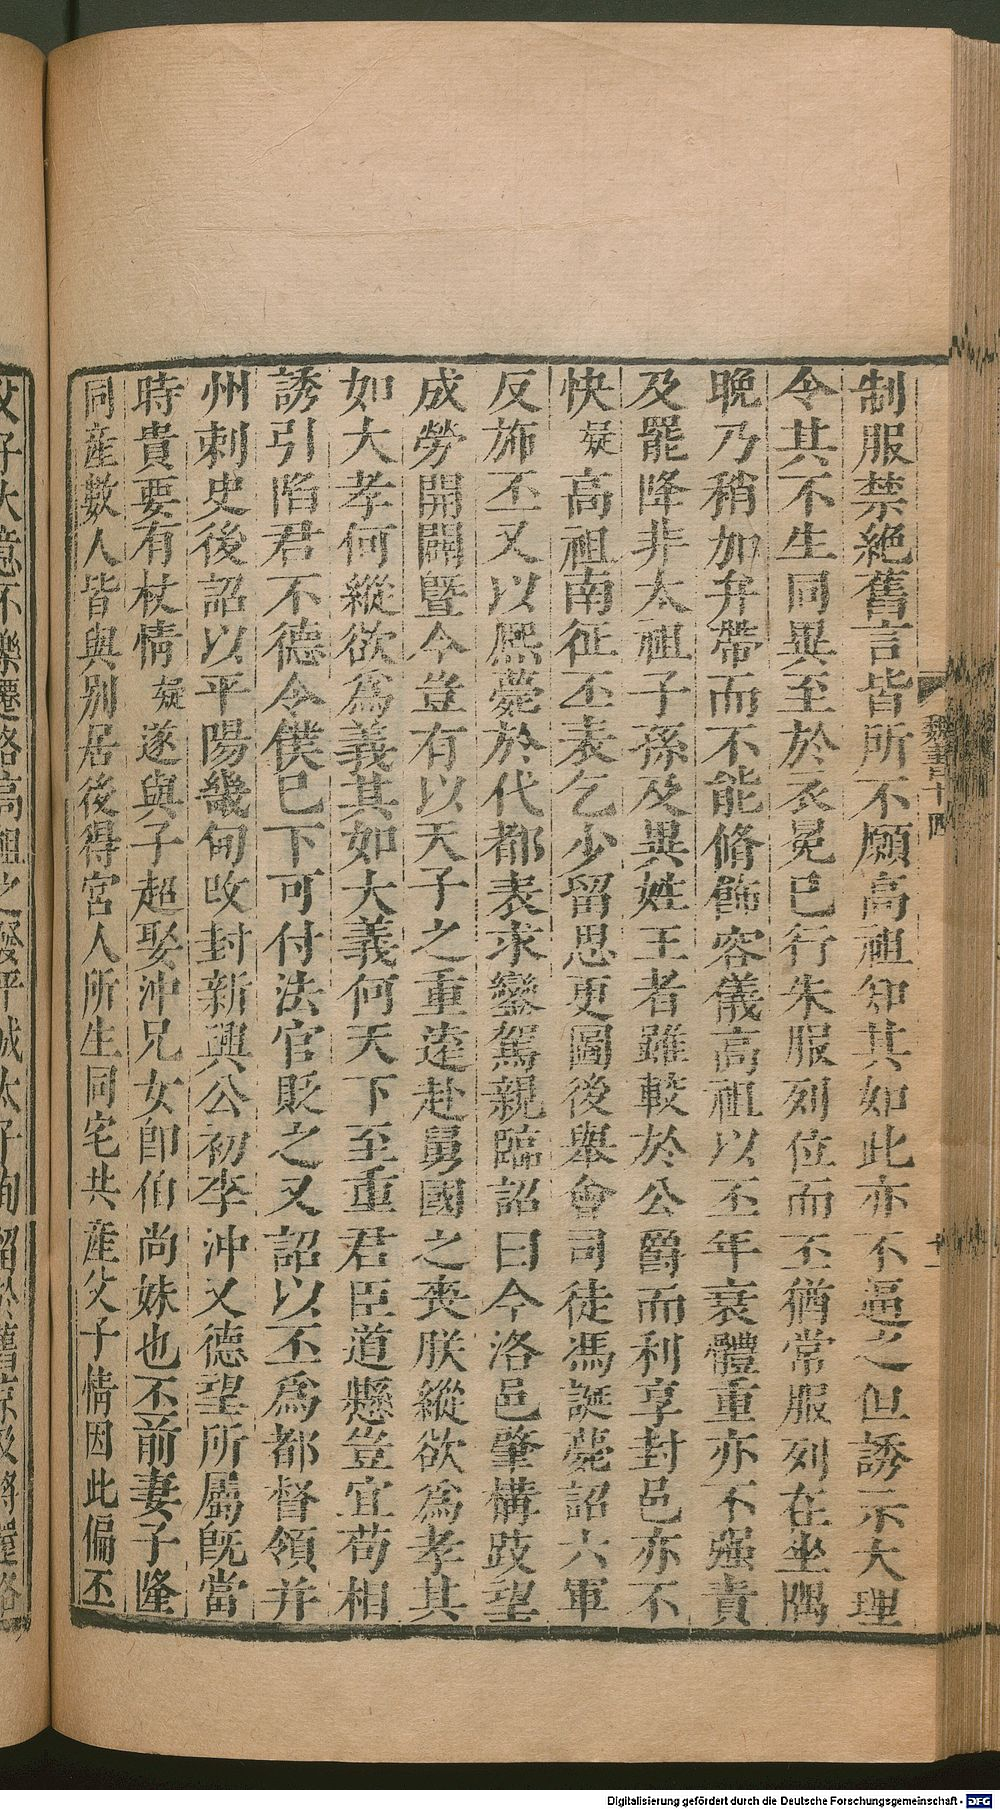 魏書十四
十一
制服禁絶舊言皆所不願高祖知其如此亦不逼之但誘示大理
令其不生同異至於衣冕已行朱服列位而丕猶常服列在坐隅
晚乃稍加弁帶而不能脩飾容儀高祖以丕年衰體重亦不强責
及罷降非太祖子孫及異姓王者雖較於公爵而利享封邑亦不
快疑高祖南征丕表乞少留思更圖後舉會司徒馮誕薨詔六軍
反斾丕又以熈薨於代都表求鑾駕親臨詔曰今洛邑肇構跂望
成勞開闢暨今豈有以天子之重逺赴舅國之喪朕縱欲爲孝其
如大孝何縱欲爲義其如大義何天下至重君臣道懸豈宜苟相
誘引陷君不德令僕已下可付法官貶之又詔以丕爲都督領并
州刺史後詔以平陽畿甸改封新興公初李沖又德望所屬旣當
時貴要有杖情疑遂與子超娶沖兄女卽伯尚妹也丕前妻子隆
同産數人皆與別居後得宮人所生同宅共産父子情因此偏丕
父子大意不樂遷洛高祖之發平城太子恂留於舊京及將還洛
Digitalisierung gefördert durch die Deutsche Forschungsgemeinschaft - DFG